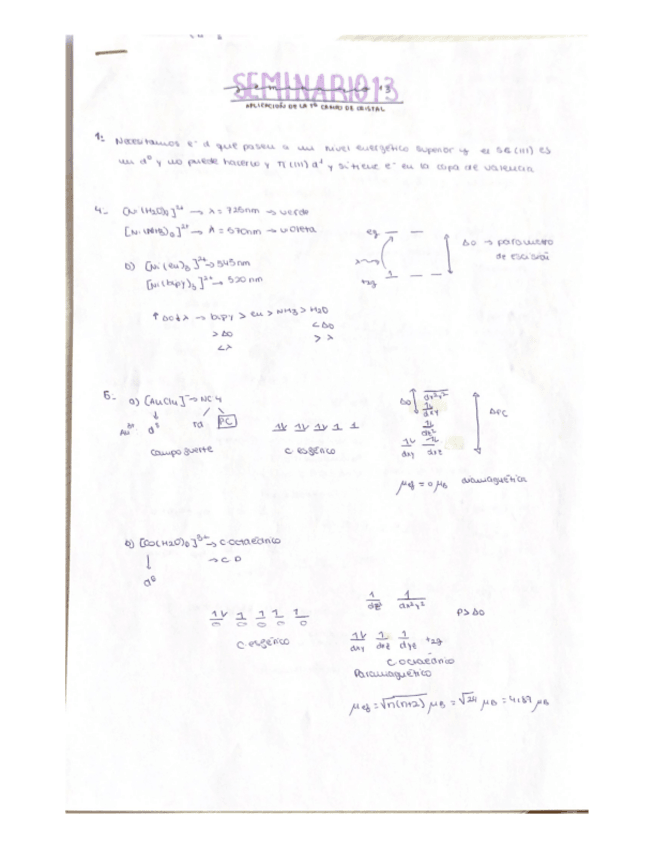 SEMINARIO 13
APLICACIÓN DE LA Tª CAMPO DE CRISTAL
1. Necesitamos e⁻ d que pasen a un nivel energético superior y el Sc (III) es
un d⁰ y no puede hacerlo y Ti (III) d¹ y si tiene e⁻ en la capa de valencia
4. [Ni(H2O)6]²⁺ → λ = 725nm → verde
[Ni(NH3)6]²⁺ → λ = 570nm → violeta
eg
Δo → parámetro
de escisión
t2g
b) [Ni(en)3]²⁺ → 545nm
[Ni(bipy)3]²⁺ → 520nm
↑Δo ↓λ → bipy > en > NH3 > H2O
>Δo <Δo
<λ >λ
a) [AuCl4]⁻ → NC 4
Au³⁺ d⁸ Td PC
campo fuerte
1↓ 1↓ 1↓ 1 1
C esférico
Δo dx²y² ΔPC
dxy
dz²
dxz
μef = 0 μB diamagnético
b) [Co(H2O)6]³⁺ → C octaédrico
→ CD
d⁶
1↓ 1 1 1 1
C esférico
1 1
dz² dx²y² P>Δo
1↓ 1 1
dxy dxz dyz t2g
C octaédrico
Paramagnético
μef = √n(n+2) μB = √24 μB = 4,89 μB